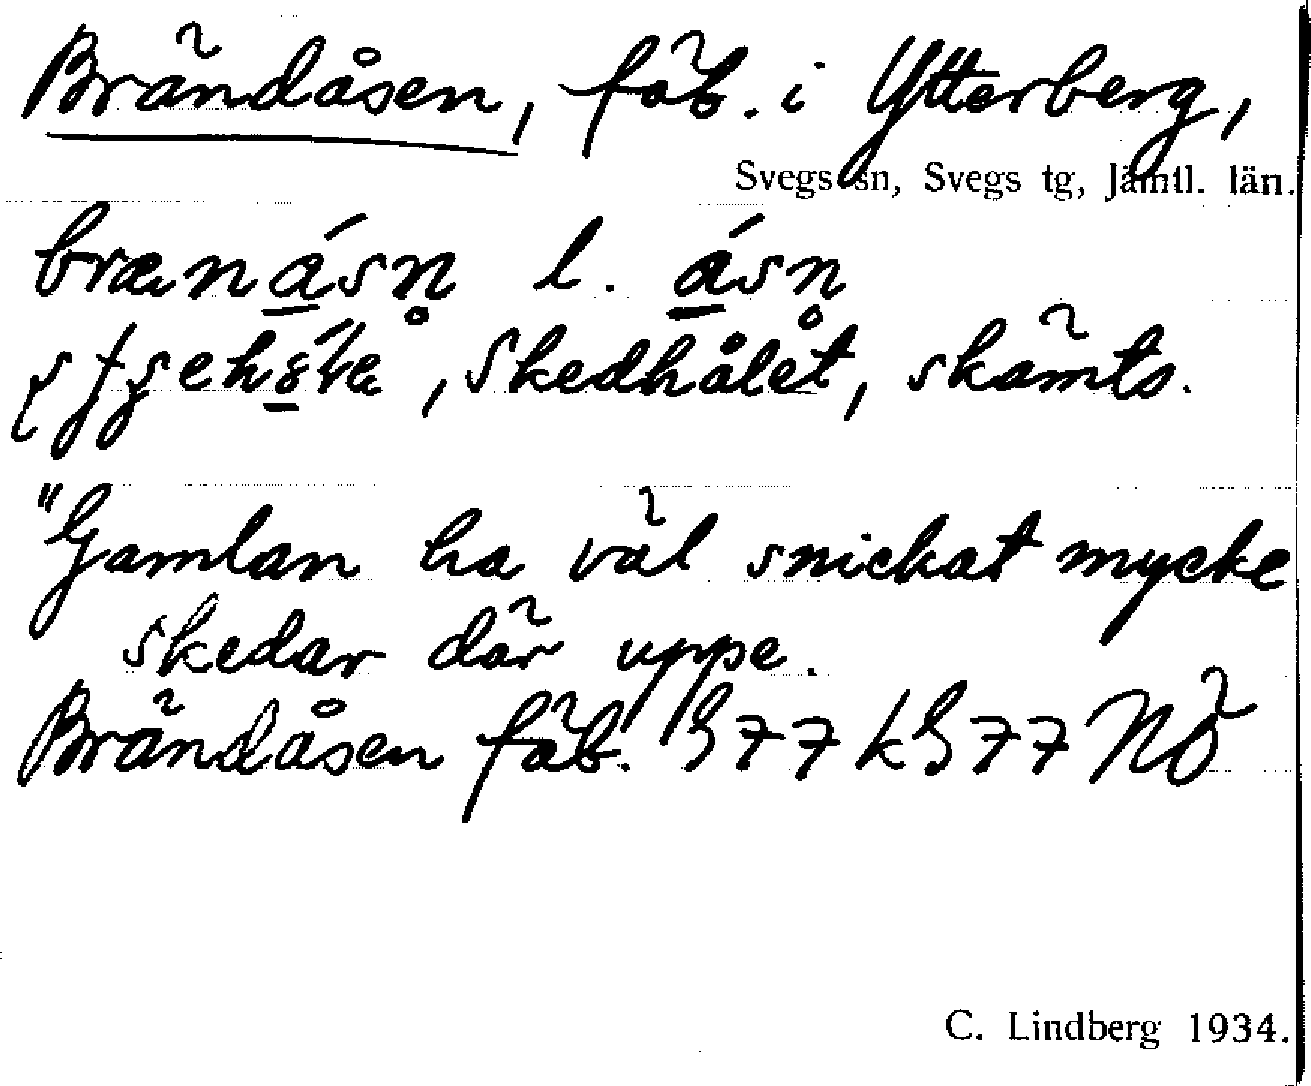 Brändåsen, fäb. i Ytterberg,
Svegs sn, Svegs tg, Jämtl. län.
brænásn̥ l. ásn̥
, Skedhålet, skämts.
"Gamlan ha väl snickat mycke
skedar där uppe.
Brändåsen fäb. G77 kG77 NÖ
C. Lindberg 1934.